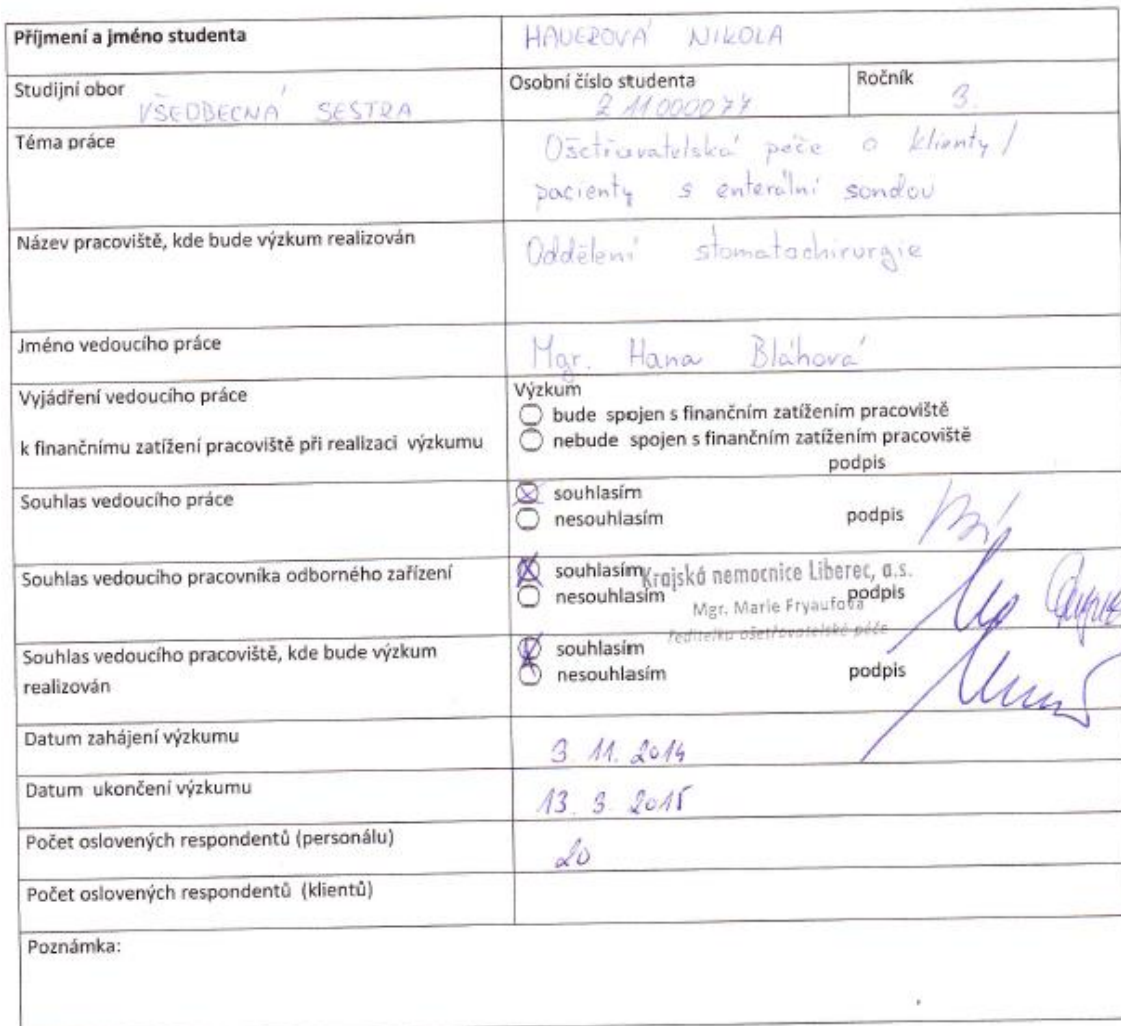 Příjmení a jméno studenta
HAUEROVÁ NIKOLA
Studijní obor
VŠEOBECNÁ SESTRA
Osobní číslo studenta
Z 11000077
Ročník
3.
Téma práce
Ošetřovatelská péče o klienty /
pacienty s enterální sondou
Název pracoviště, kde bude výzkum realizován
Oddělení stomatochirurgie
Jméno vedoucího práce
Mgr. Hana Bláhová
Vyjádření vedoucího práce
k finančnímu zatížení pracoviště při realizaci výzkumu
Výzkum
bude spojen s finančním zatížením pracoviště
nebude spojen s finančním zatížením pracoviště
podpis
Souhlas vedoucího práce
souhlasím
nesouhlasím podpis
Souhlas vedoucího pracovníka odborného zařízení
souhlasím
nesouhlasím podpis
Krajská nemocnice Liberec, a.s.
Mgr. Marie Fryaufová
ředitelka ošetřovatelské péče
Souhlas vedoucího pracoviště, kde bude výzkum
realizován
souhlasím
nesouhlasím podpis
Datum zahájení výzkumu
3. 11. 2014
Datum ukončení výzkumu
13. 3. 2015
Počet oslovených respondentů (personálu)
20
Počet oslovených respondentů (klientů)
Poznámka: